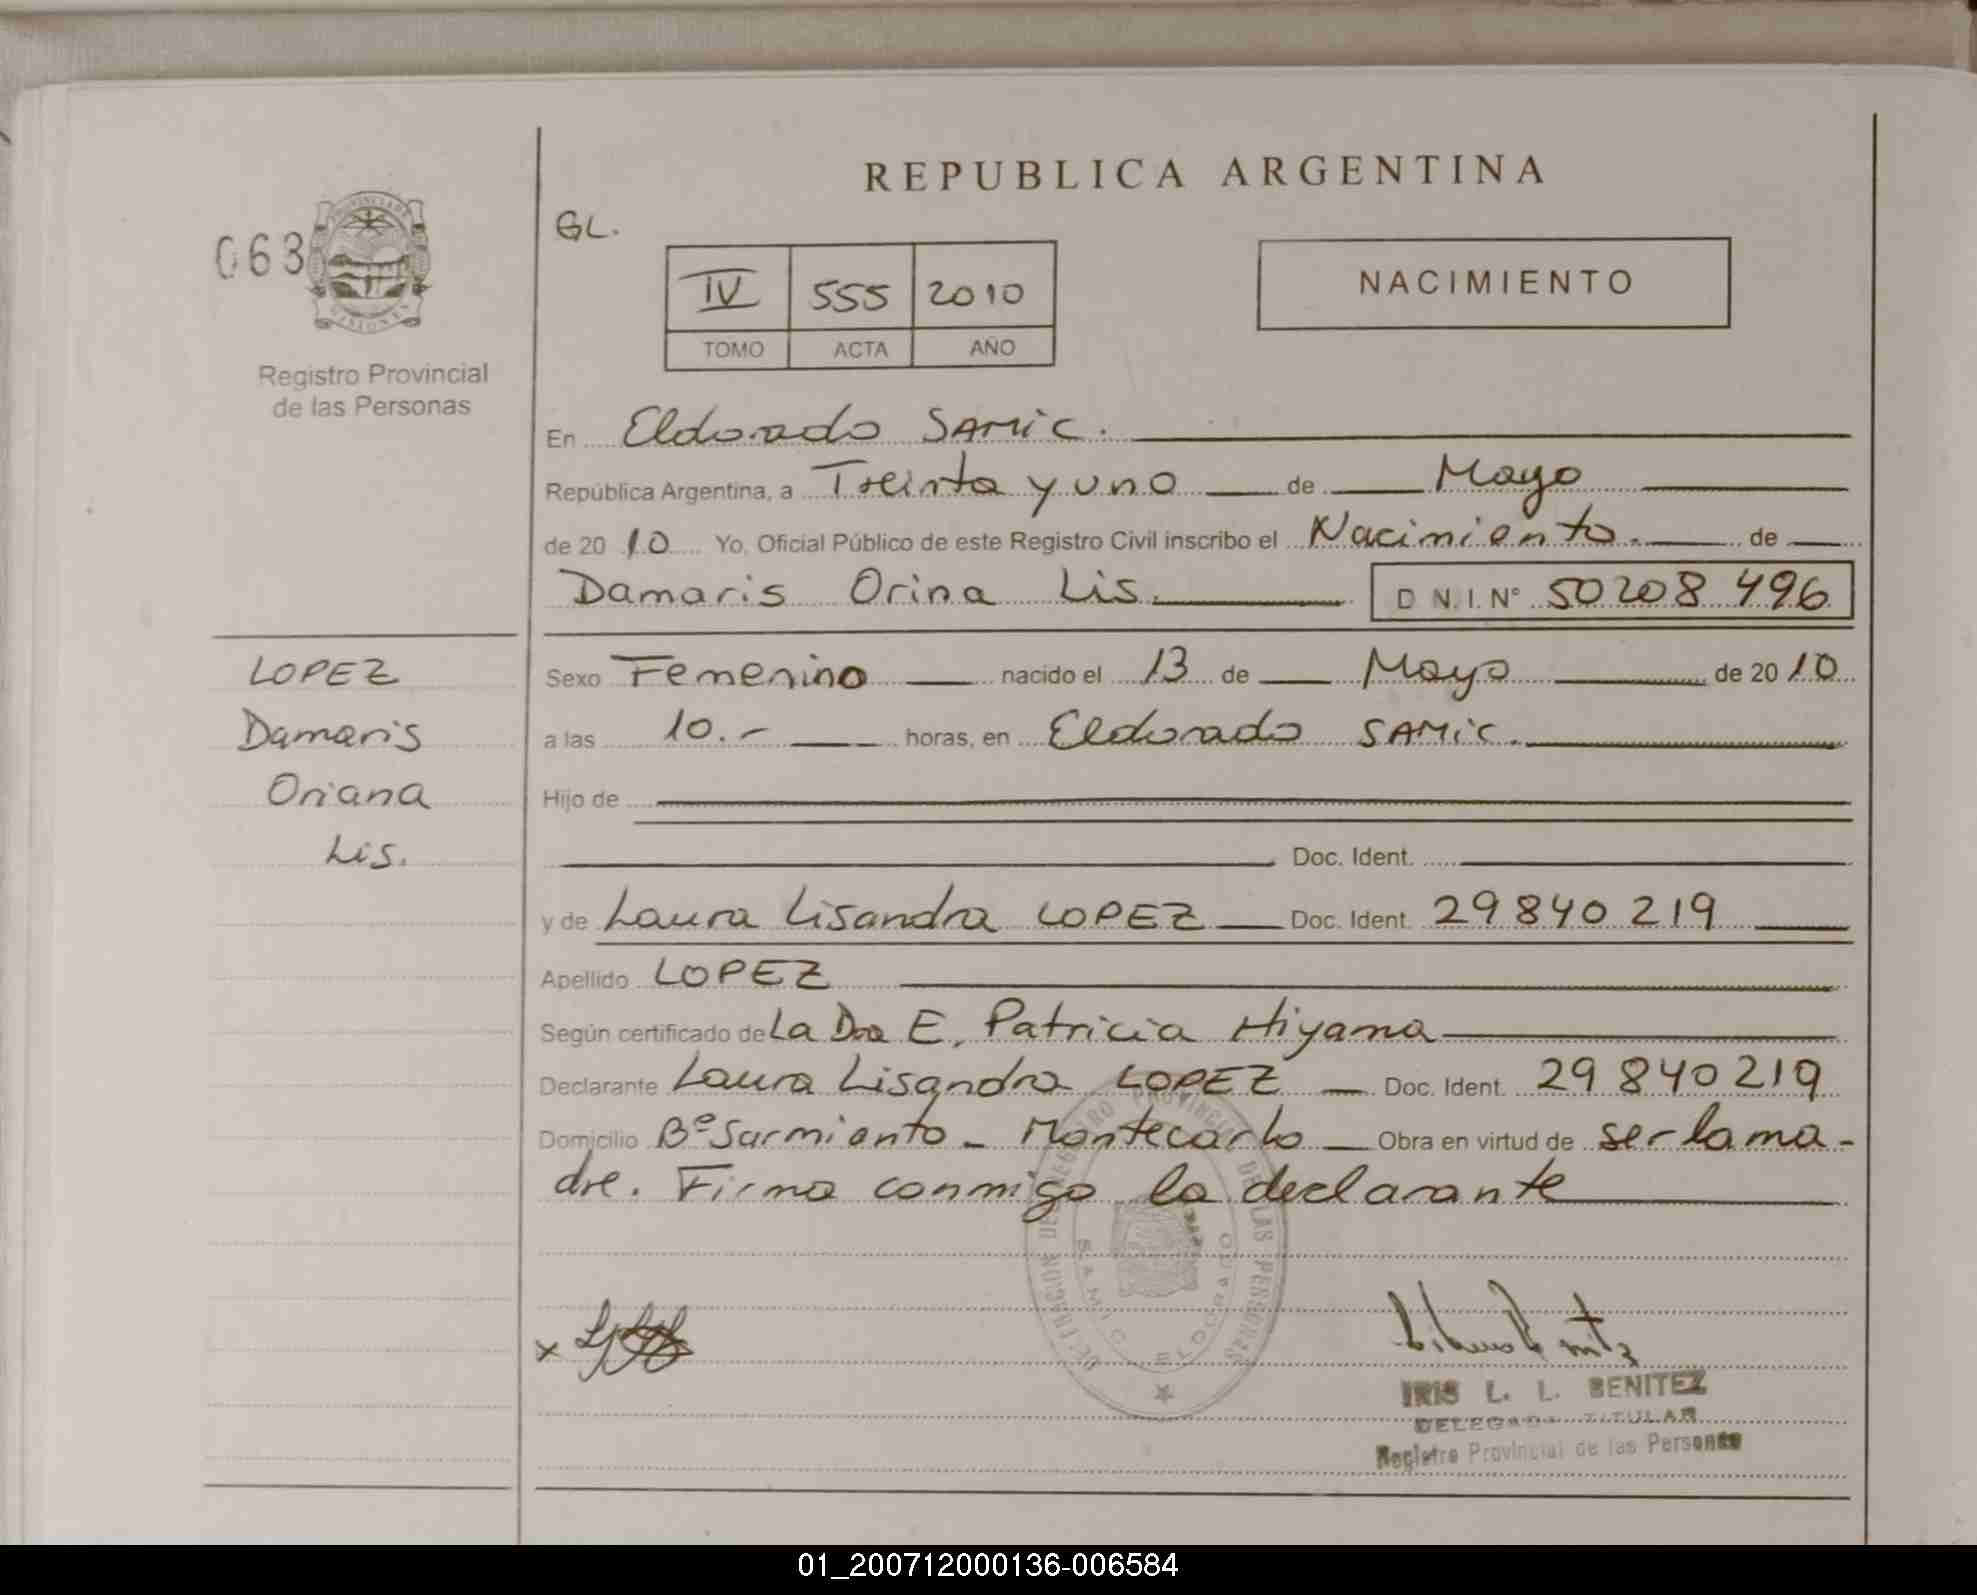 REPUBLICA ARGENTINA
063
PROVINCIA DE
MISIONES
Registro Provincial
de las Personas
GL.
IV 555 2010
TOMO ACTA AÑO
NACIMIENTO
En Eldorado SAMIC.
República Argentina, a Treinta y uno de Mayo
de 2010 Yo, Oficial Público de este Registro Civil inscribo el Nacimiento. de
Damaris Orina Lis. D.N.I. N° 50208496
LOPEZ
Damaris
Oriana
Lis.
Sexo Femenino nacido el 13 de Mayo de 2010
a las 10.- horas, en Eldorado SAMIC.
Hijo de
Doc. Ident.
y de Laura Lisandra LOPEZ Doc. Ident. 29840219
Apellido LOPEZ
Según certificado de La Dra E. Patricia Hiyama
Declarante Laura Lisandra LOPEZ Doc. Ident. 29840219
Domicilio B° Sarmiento - Montecarlo Obra en virtud de ser la ma-
dre. Firma conmigo la declarante
REGISTRO PROVINCIAL DE LAS PERSONAS
SAMIC ELDORADO
x
IRIS L. L. BENITEZ
DELEGADA TITULAR
Registro Provincial de las Personas
01_200712000136-006584